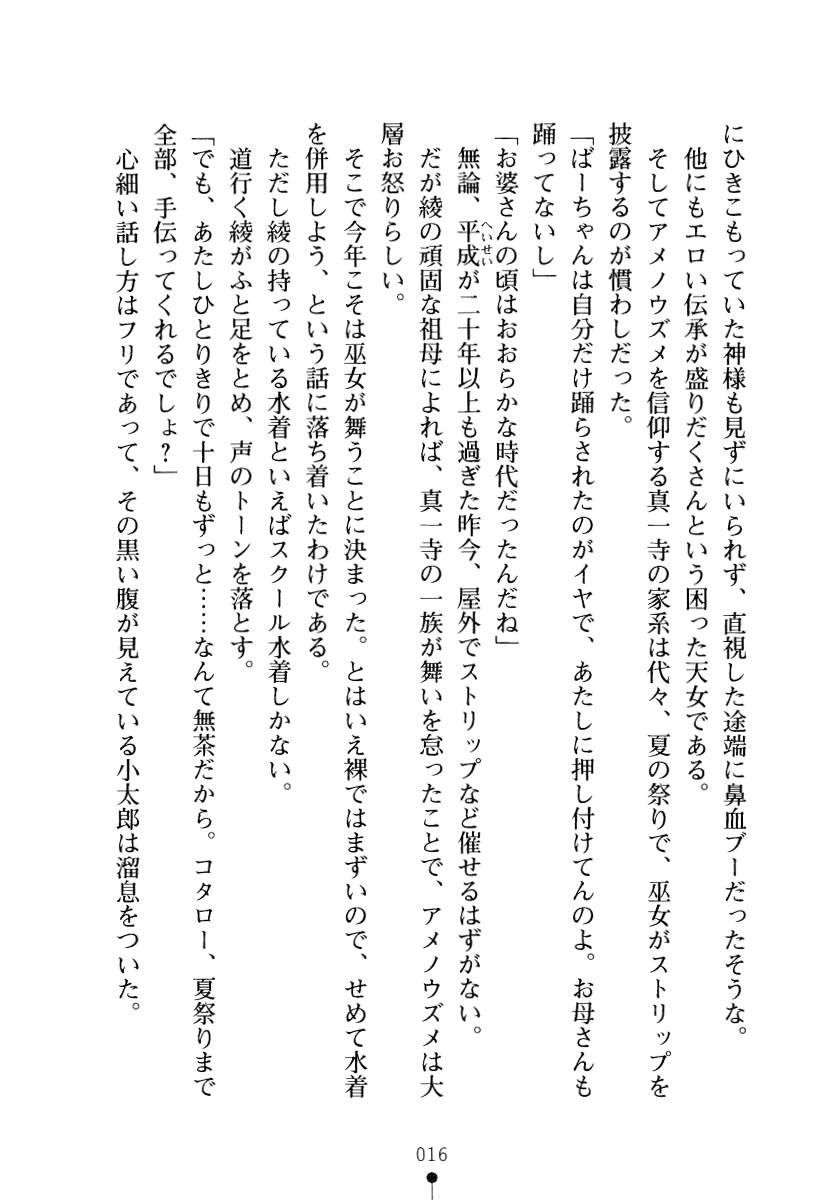 にひきこもっていた神様も見ずにいられず、直視した途端に鼻血ブーだったそうな。
他にもエロい伝承が盛りだくさんという困った天女である。
そしてアメノウズメを信仰する真一寺の家系は代々、夏の祭りで、巫女がストリップを
披露するのが慣わしだった。
「ばーちゃんは自分だけ踊らされたのがイヤで、あたしに押し付けてんのよ。お母さんも
踊ってないし」
「お婆さんの頃はおおらかな時代だったんだね」
無論、平成が二十年以上も過ぎた昨今、屋外でストリップなど催せるはずがない。
へいせい
だが綾の頑固な祖母によれば、真一寺の一族が舞いを怠ったことで、アメノウズメは大
層お怒りらしい。
そこで今年こそは巫女が舞うことに決まった。とはいえ裸ではまずいので、せめて水着
を併用しよう、という話に落ち着いたわけである。
ただし綾の持っている水着といえばスクール水着しかない。
道行く綾がふと足をとめ、声のトーンを落とす。
「でも、あたしひとりきりで十日もずっと……なんて無茶だから。コタロー、夏祭りまで
全部、手伝ってくれるでしょ？」
心細い話し方はフリであって、その黒い腹が見えている小太郎は溜息をついた。
016